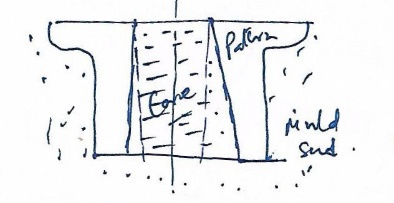 Pattern
Core
mould
sand.